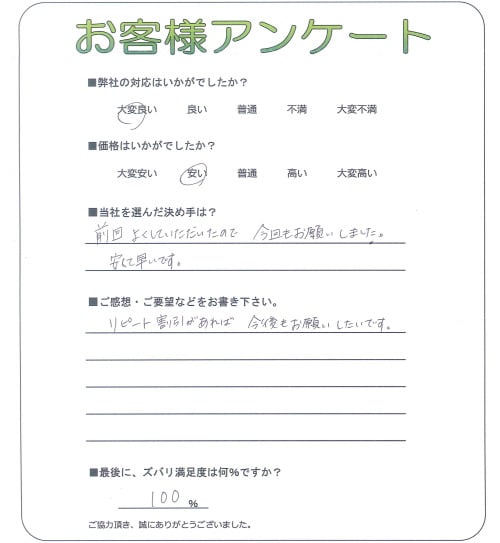 お客様アンケート
■弊社の対応はいかがでしたか？
大変良い 良い 普通 不満 大変不満
■価格はいかがでしたか？
大変安い 安い 普通 高い 大変高い
■当社を選んだ決め手は？
前回よくしていただいたので 今回もお願いしました。
安くて早いです。
■ご感想・ご要望などをお書き下さい。
リピート割引があれば 今後もお願いしたいです。
■最後に、ズバリ満足度は何%ですか？
100 %
ご協力頂き、誠にありがとうございました。